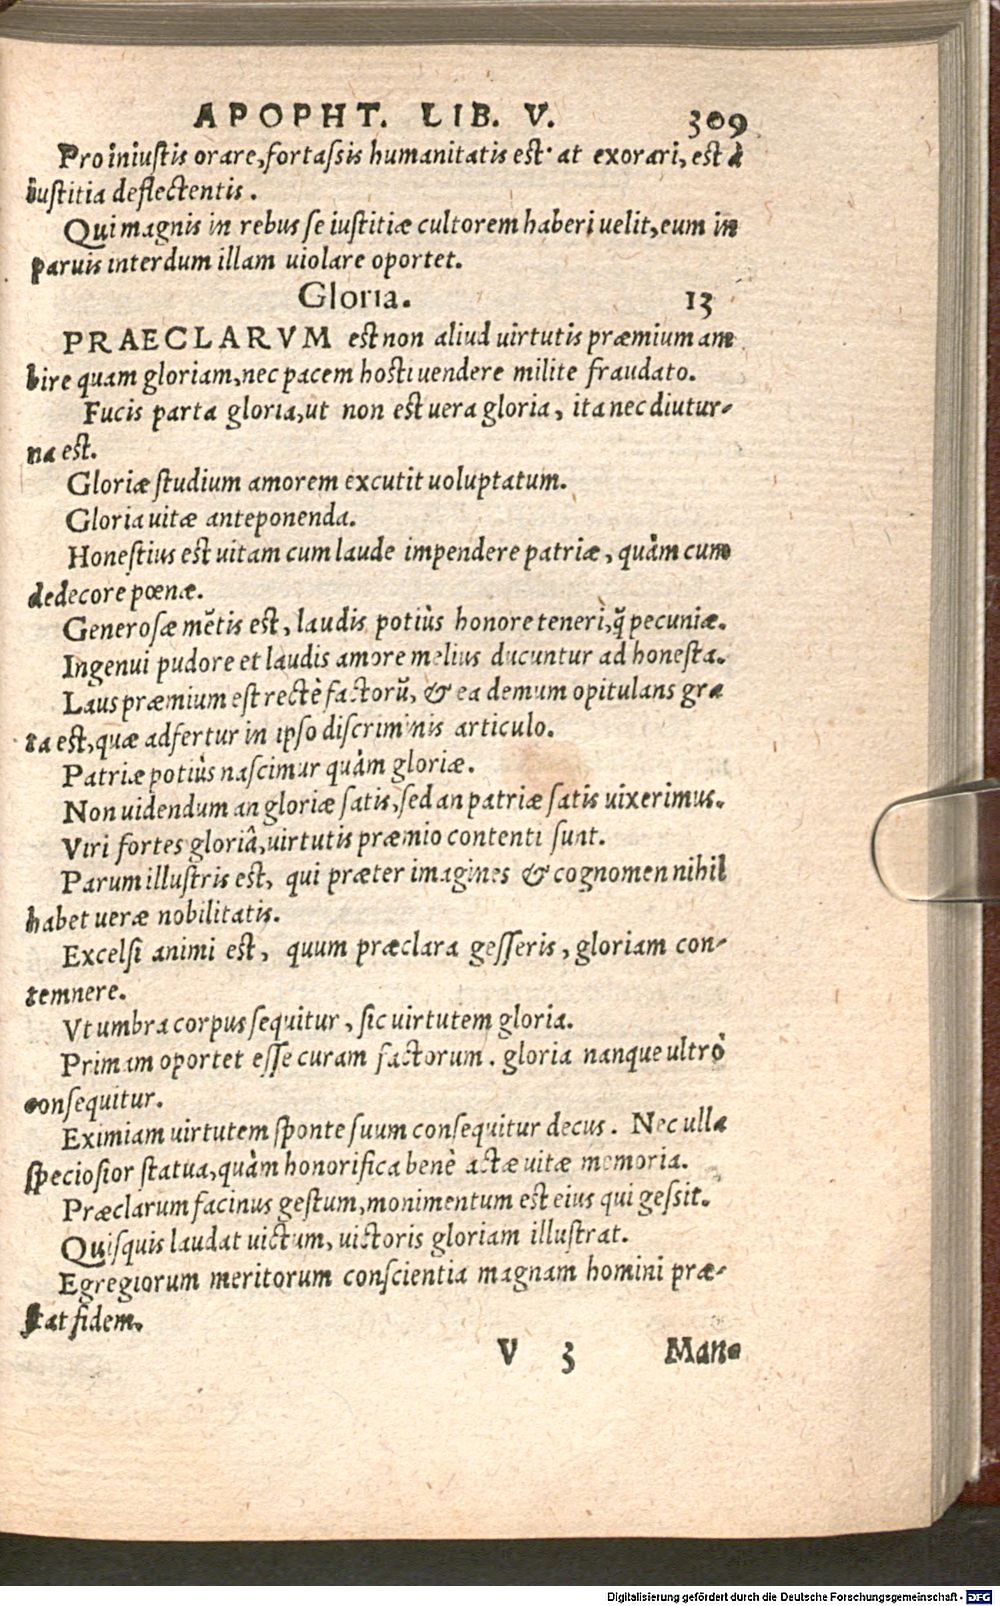 APOPHT. LIB. V. 309
Pro iniustis orare, fortassis humanitatis est· at exorari, est à
iustitia deflectentis.
Qui magnis in rebus se iustitiæ cultorem haberi uelit, eum in
paruis interdum illam uiolare oportet.
Gloria. 13
PRAECLARVM est non aliud uirtutis præmium am
bire quam gloriam, nec pacem hosti uendere milite fraudato.
Fucis parta gloria, ut non est uera gloria, ita nec diutur-
na est.
Gloriæ studium amorem excutit uoluptatum.
Gloria uitæ anteponenda.
Honestius est uitam cum laude impendere patriæ, quàm cum
dedecore pœnæ.
Generosæ mẽtis est, laudis potiùs honore teneri, q̃ pecuniæ.
Ingenui pudore et laudis amore melius ducuntur ad honesta.
Laus præmium est rectè factorũ, & ea demum opitulans gra
ta est, quæ adfertur in ipso discriminis articulo.
Patriæ potiùs nascimur quàm gloriæ.
Non uidendum an gloriæ satis, sed an patriæ satis uixerimus.
Viri fortes gloriâ, uirtutis præmio contenti sunt.
Parum illustris est, qui præter imagines & cognomen nihil
habet ueræ nobilitatis.
Excelsi animi est, quum præclara gesseris, gloriam con-
temnere.
Vt umbra corpus sequitur, sic uirtutem gloria.
Primam oportet esse curam factorum. gloria nanque ultrò
consequitur.
Eximiam uirtutem sponte suum consequitur decus. Nec ulla
speciosior statua, quàm honorifica benè actæ uitæ memoria.
Præclarum facinus gestum, monimentum est eius qui gessit.
Quisquis laudat uictum, uictoris gloriam illustrat.
Egregiorum meritorum conscientia magnam homini præ-
stat fidem.
V 3 Man-
Digitalisierung gefördert durch die Deutsche Forschungsgemeinschaft - DFG